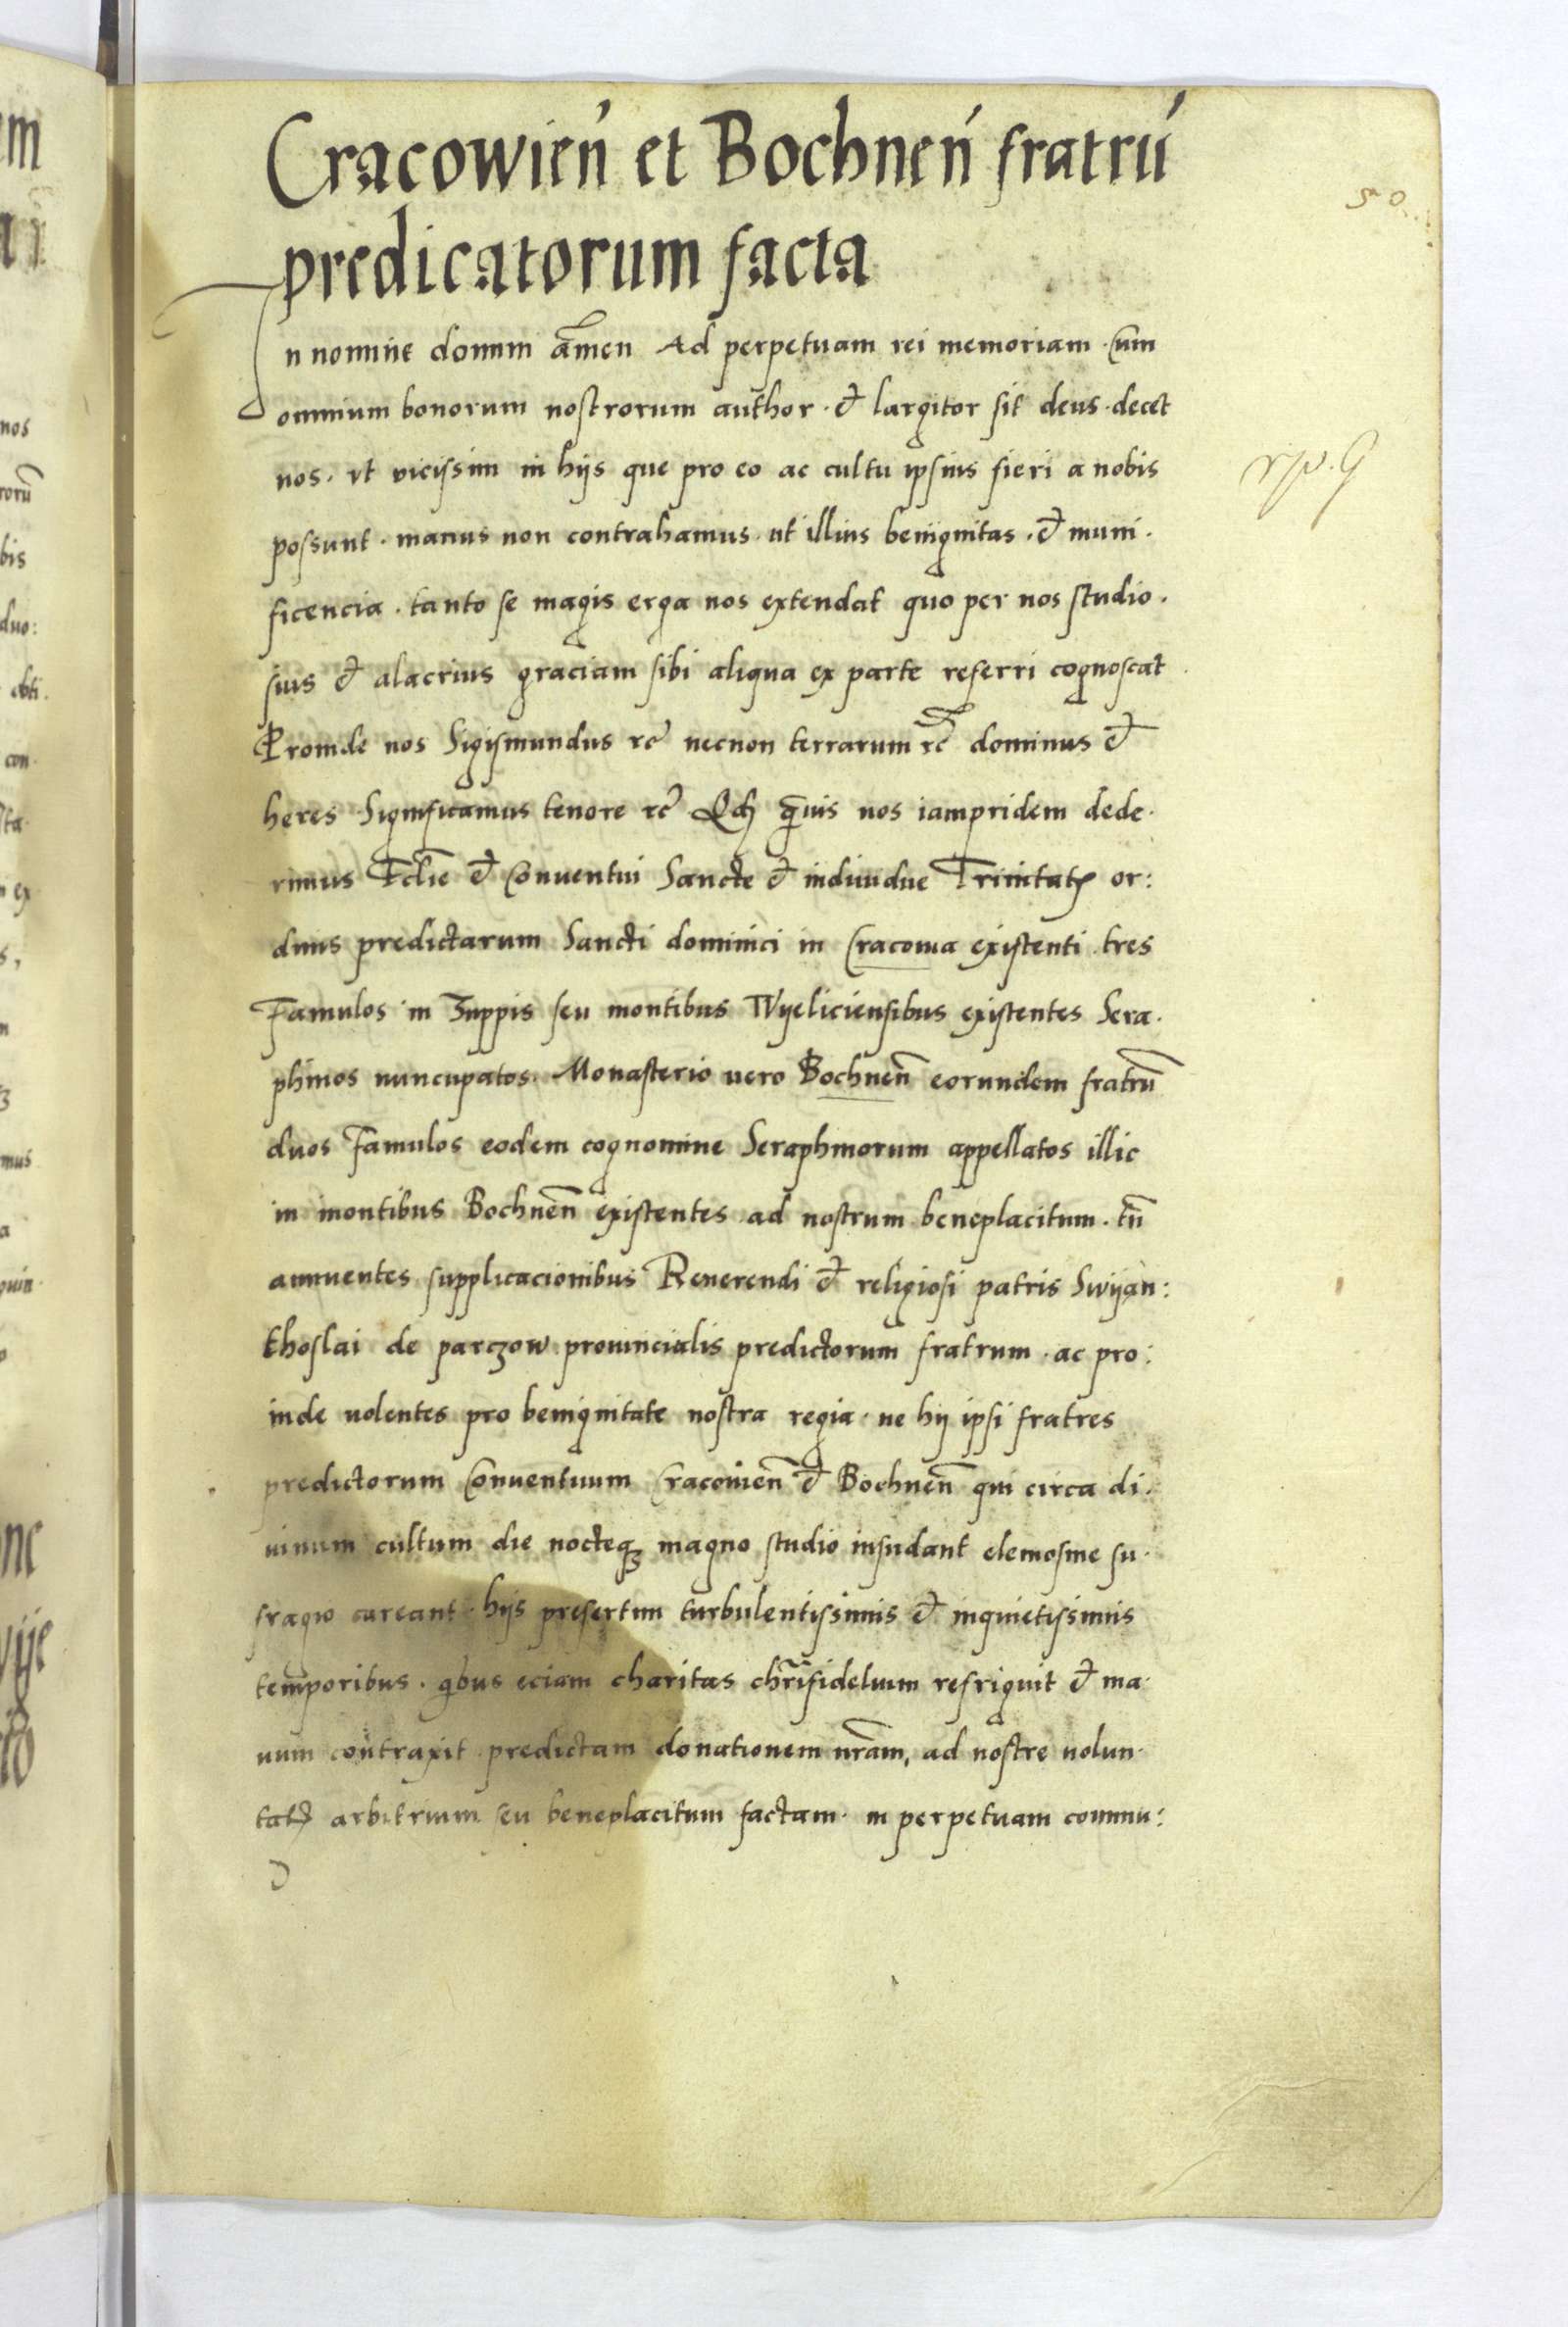 Cracowien̄ et Bochnen̄ fratrū
predicatorum facta
In nomine domini am̄en Ad perpetuam rei memoriam. Cum
omnium bonorum nostrorum author. et largitor sit deus. decet
nos. vt vicissim in hijs que pro eo ac cultu ipsius fieri a nobis
possunt. manus non contrahamus. ut illius benignitas. et muni.
ficencia. tanto se magis erga nos extendat quo per nos studio.
sius et alacrius graciam sibi aliqua ex parte referri cognoscat
Proinde nos Sigismundus rc̄ necnon terrarum rc̄ dominus et
heres. Significamus tenore rc̄. Qd̄ q̄uis nos iampridem dede.
rimus Eccl̄ie et Conuentui Sancte et indiuidue Trinitatꝭ or:
dinis predictarum Sancti dominici in Cracouia existenti. tres
Famulos in Zuppis seu montibus Wyeliciensibus existentes Sera.
phinos nuncupatos. Monasterio uero Bochnen̄ eorundem fratrū
duos Famulos eodem cognomine Seraphinorum appellatos illic
in montibus Bochnen̄ existentes. ad nostrum beneplacitum. tn̄
annuentes supplicacionibus Reuerendi et religiosi patris Swyan:
thoslai de parczow prouincialis predictorum fratrum. ac pro:
inde uolentes pro benignitate nostra regia. ne hij ipsi fratres
predictorum Conuentuum Cracouien̄ et Bochnen̄ qui circa di.
uinum cultum die nocteqꝫ magno studio insudant elemosine su.
fragio careant. hijs presertim turbulentissimis et inquietissimis
temporibus. qibus eciam charitas chr̄ifidelium refriguit et ma.
num contraxit. predictam donationem nr̄am, ad nostre uolun.
tatꝭ arbitrium seu beneplacitum factam. in perpetuam commu: